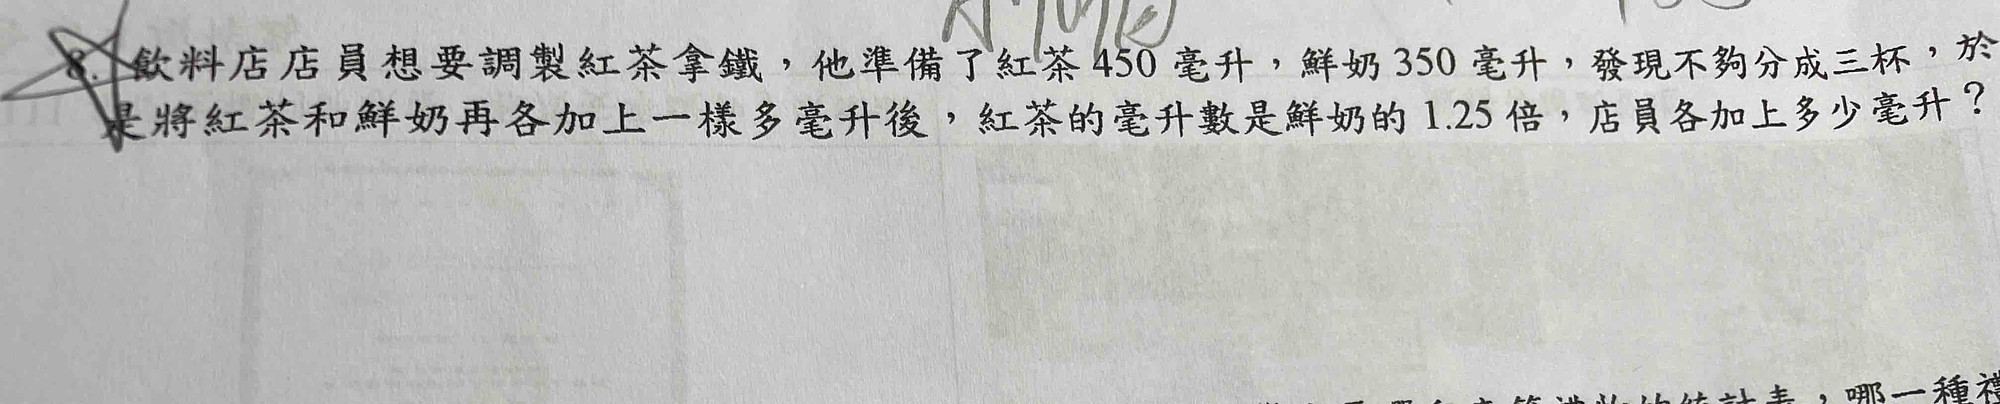 8. 飲料店店員想要調製紅茶拿鐵，他準備了紅茶 450 毫升，鮮奶 350 毫升，發現不夠分成三杯，於
是將紅茶和鮮奶再各加上一樣多毫升後，紅茶的毫升數是鮮奶的 1.25 倍，店員各加上多少毫升？
哪一種禮